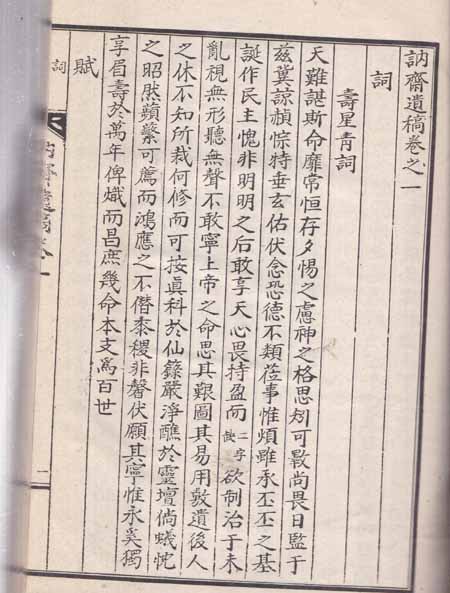 訥齋遺稿卷之一
詞
壽星青詞
天難諶斯命靡常恒存夕惕之慮神之格思矧可斁尚畏日監于
茲冀諒楨悰特垂玄佑伏念恐德不類莅事惟煩雖承丕丕之基
誕作民主愧非明明之后敢享天心畏持盈而二字缺欲制治于未
亂視無形聽無聲不敢寧上帝之命思其艱圖其易用敦遺後人
之休不知所裁何修而可按眞科於仙籙嚴淨醮於靈壇倘蟻忱
之昭然蘋蘩可薦而鴻應之不僭黍稷非馨伏願其寧惟永奚獨
享眉壽於萬年俾熾而昌庶幾命本支爲百世
賦
詞
訥齋遺稿卷一
二